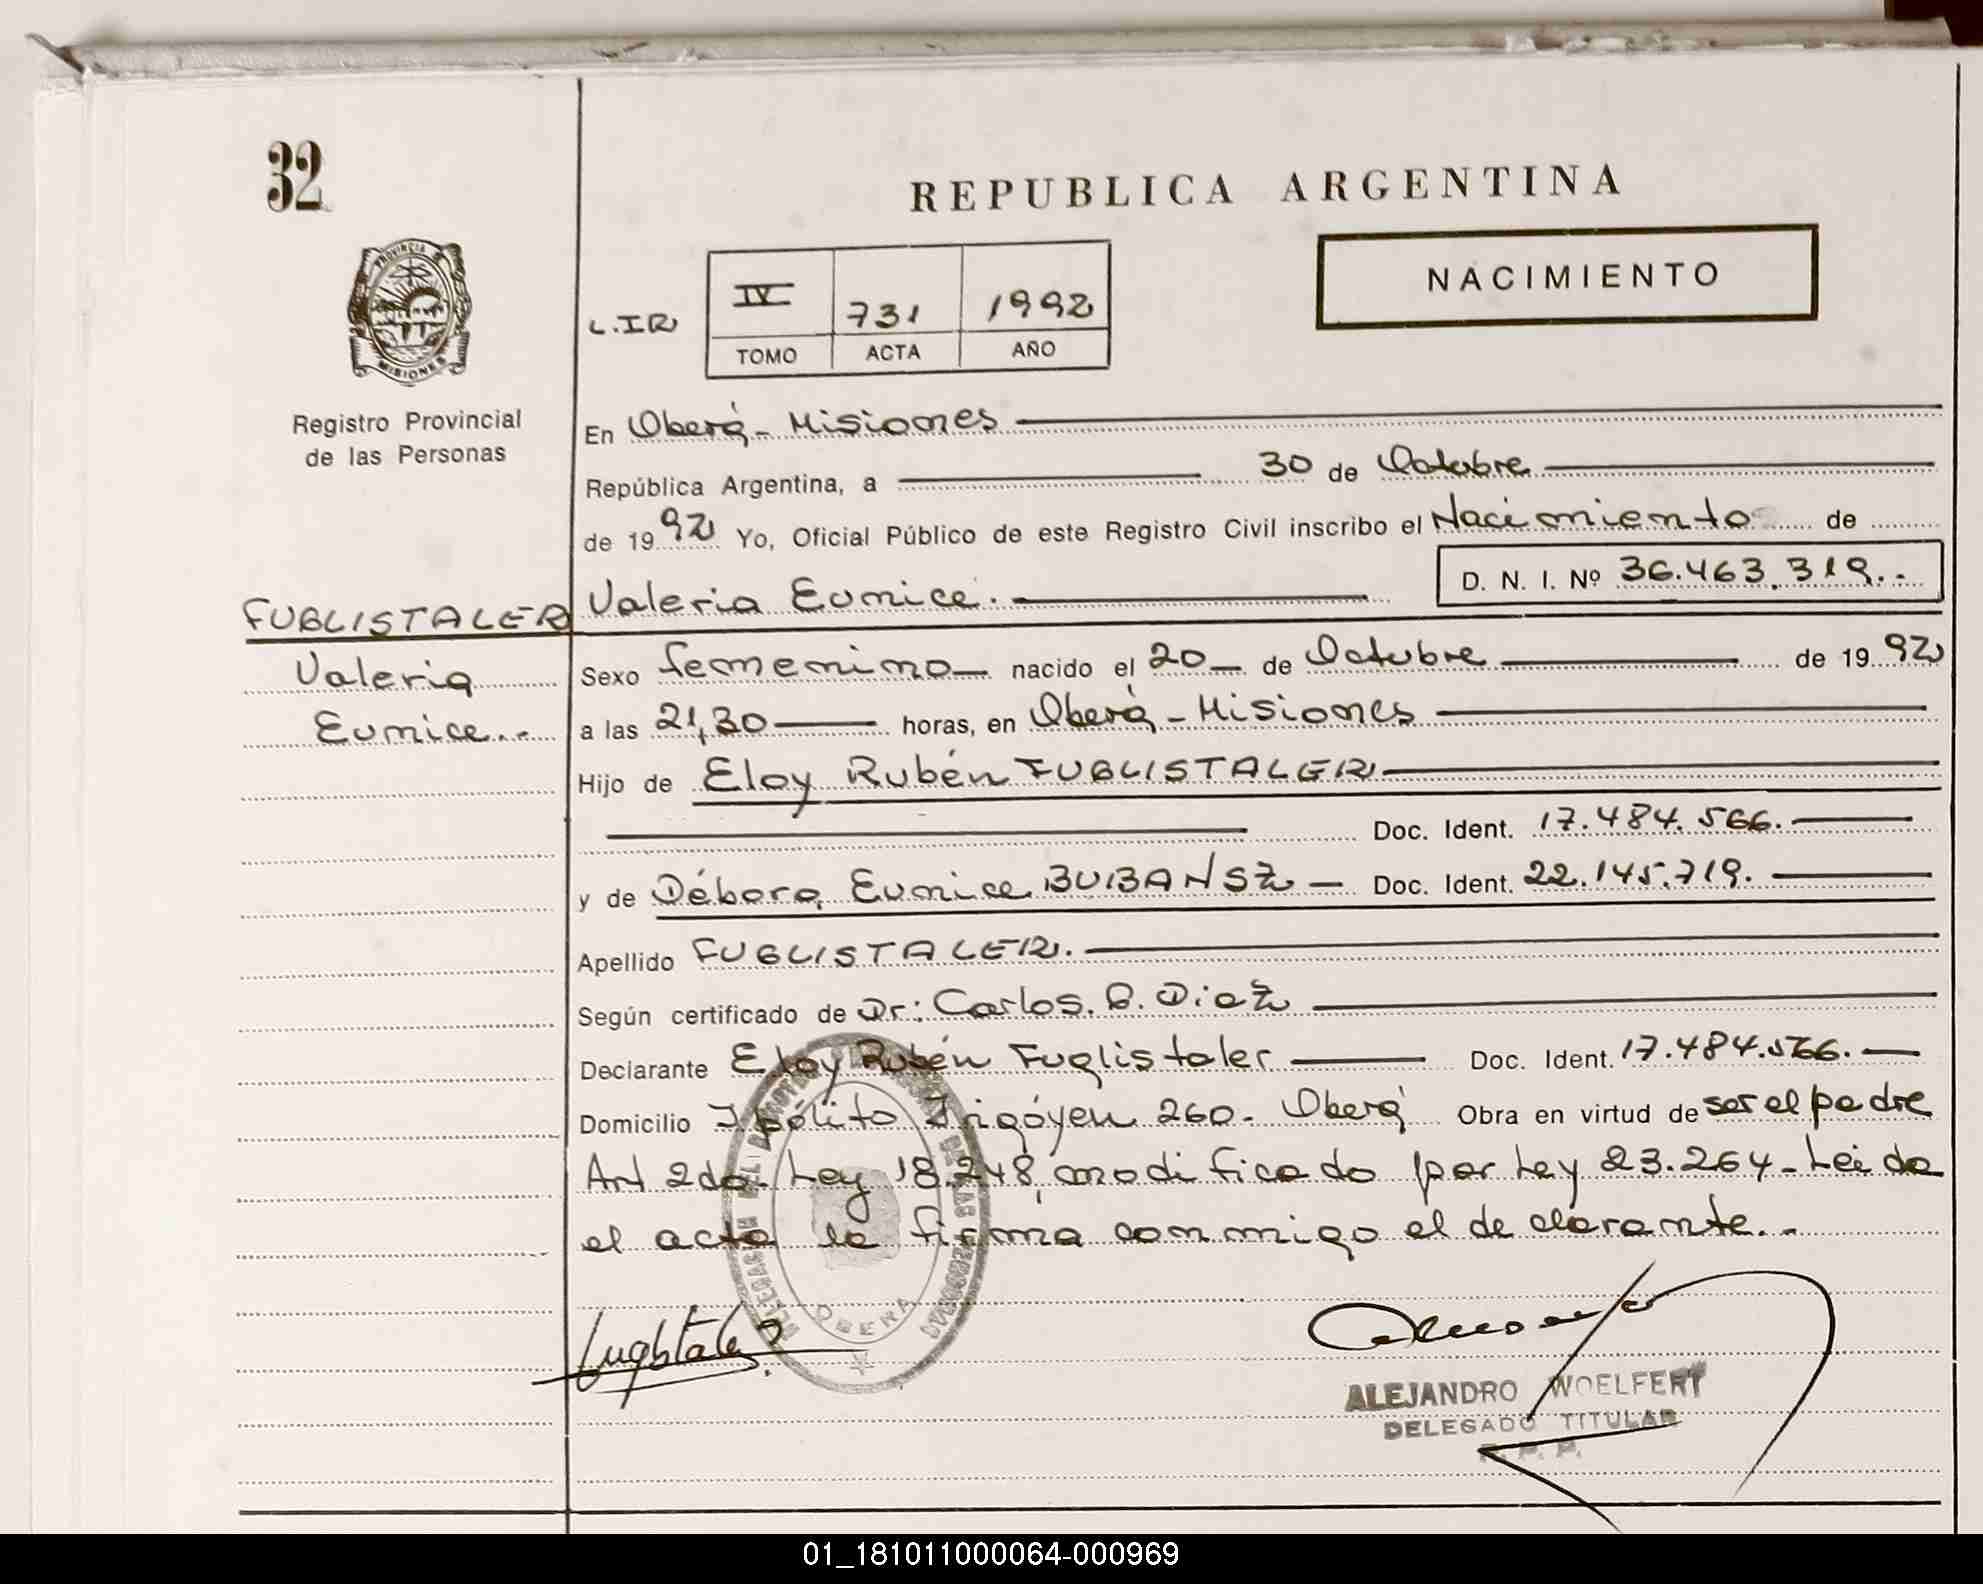 32
REPUBLICA ARGENTINA
PROVINCIA DE
MISIONES
NACIMIENTO
L.IR
IV 731 1992
TOMO ACTA AÑO
Registro Provincial
de las Personas
En Oberá - Misiones
República Argentina, a 30 de Octubre
de 1992 Yo, Oficial Público de este Registro Civil inscribo el Nacimiento de
Valeria Eunice. D. N. I. Nº 36.463.319.-
FUGLISTALER
Valeria
Eunice.-
Sexo femenino nacido el 20 de Octubre de 1992
a las 21,30 horas, en Oberá - Misiones
Hijo de Eloy Rubén FUGLISTALER
Doc. Ident. 17.484.566.
y de Débora Eunice BUBANSZ Doc. Ident. 22.145.719.
Apellido FUGLISTALER.
Según certificado de Dr: Carlos. B. Diaz
Declarante Eloy Rubén Fuglistaler Doc. Ident. 17.484.566.
Domicilio Ipólito Irigóyen 260 - Oberá Obra en virtud de ser el padre
Art 2do. Ley 18.248, modificado por Ley 23.264 - Leida
el acta la firma conmigo el declarante.-
OBERA
ALEJANDRO WOELFERT
DELEGADO TITULAR
R. P. P.
01_181011000064-000969